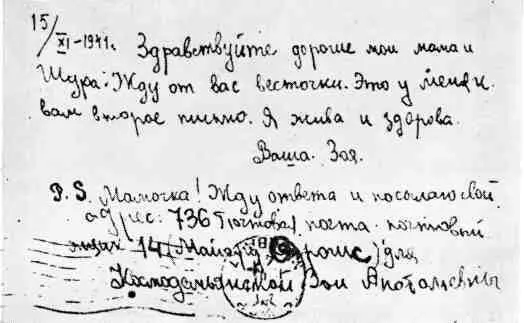 15/XI-1941г. Здравствуйте дорогие мои мама и
Шура! Жду от вас весточки. Это у меня к
вам второе письмо. Я жива и здорова.
Ваша. Зоя.
P.S. Мамочка! Жду ответа и посылаю свой
адрес: 736 почтовая почта. почтовый
ящик 14 (Майору Спрогис) для
Космодемьянской Зои Анатольевны